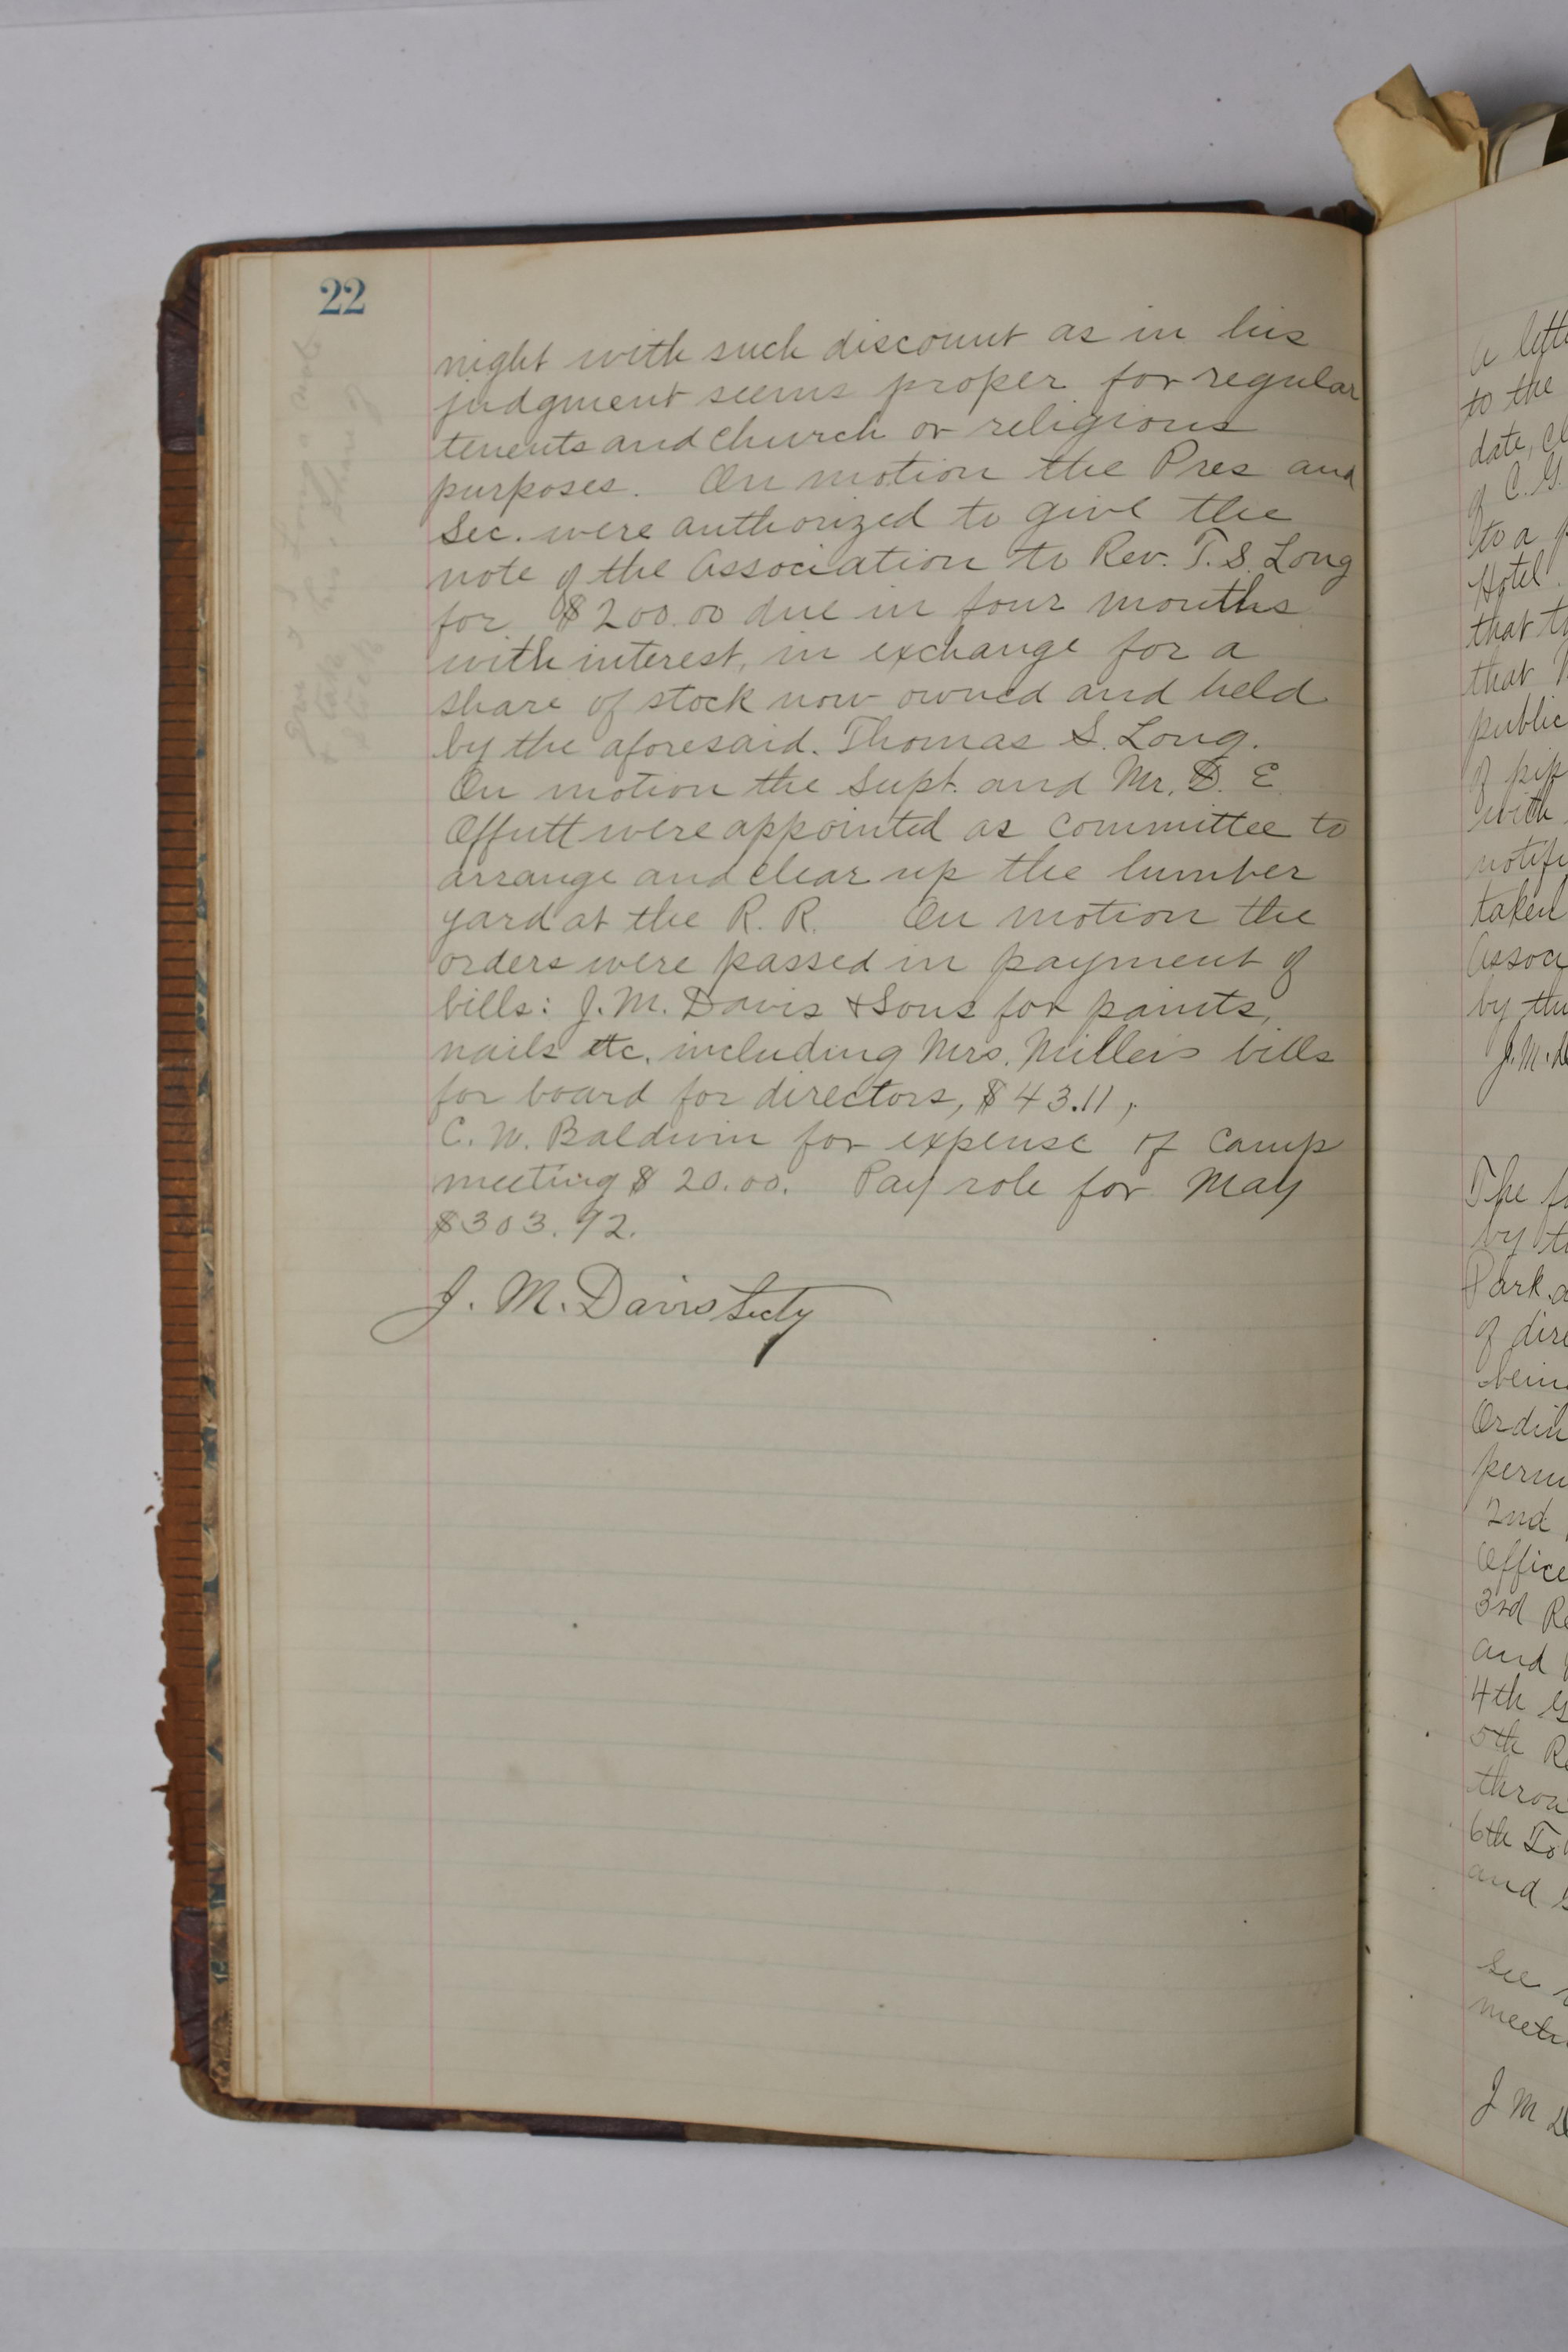 22
night with such discount as in his
judgment seems proper for regular
tenents and church or religious
purposes. On motion the Pres and
Sec. were authorized to give the
note of the Association to Rev. T. S. Long
for $200.00 due in four months
with interest, in exchange for a
share of stock now owned and held
by the aforesaid. Thomas S. Long.
On motion the Supt. and Mr. D. E.
Offutt were appointed as committee to
arrange and clear up the lumber
yard at the R. R. On motion the
orders were passed in payment of
bills: J. M. Davis & Sons for paints,
nails etc. including Mrs. Millers bills
for board for directors, $43.11,
C. W. Baldwin for expense of camp
meeting $20.00. Pay role for May
$303.92.
J. M. Davis Secty
a
to the
date,
of C. G.
to a
Hotel.
that
that
public
of
with
notif
taken
Assoc
by
J. M.
The
by
Park
of dire
being
Ordi
perm
2nd
Office
3rd
and
4th
5th
throu
6th To
and
See
meeti
J M